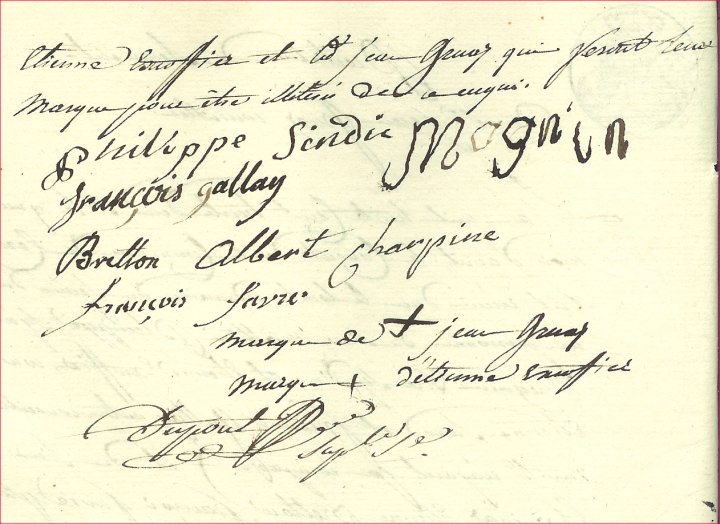 Etienne Sauffier et led. jean Gruaz qui feront leur
marque pour être illiteré de ce enquis.
Philippe Sindic Magnin
françois gallay
Bretton Albert Charpine
françois favre
marque de + jean Gruaz
marque + d'étienne Sauffier
Dupont